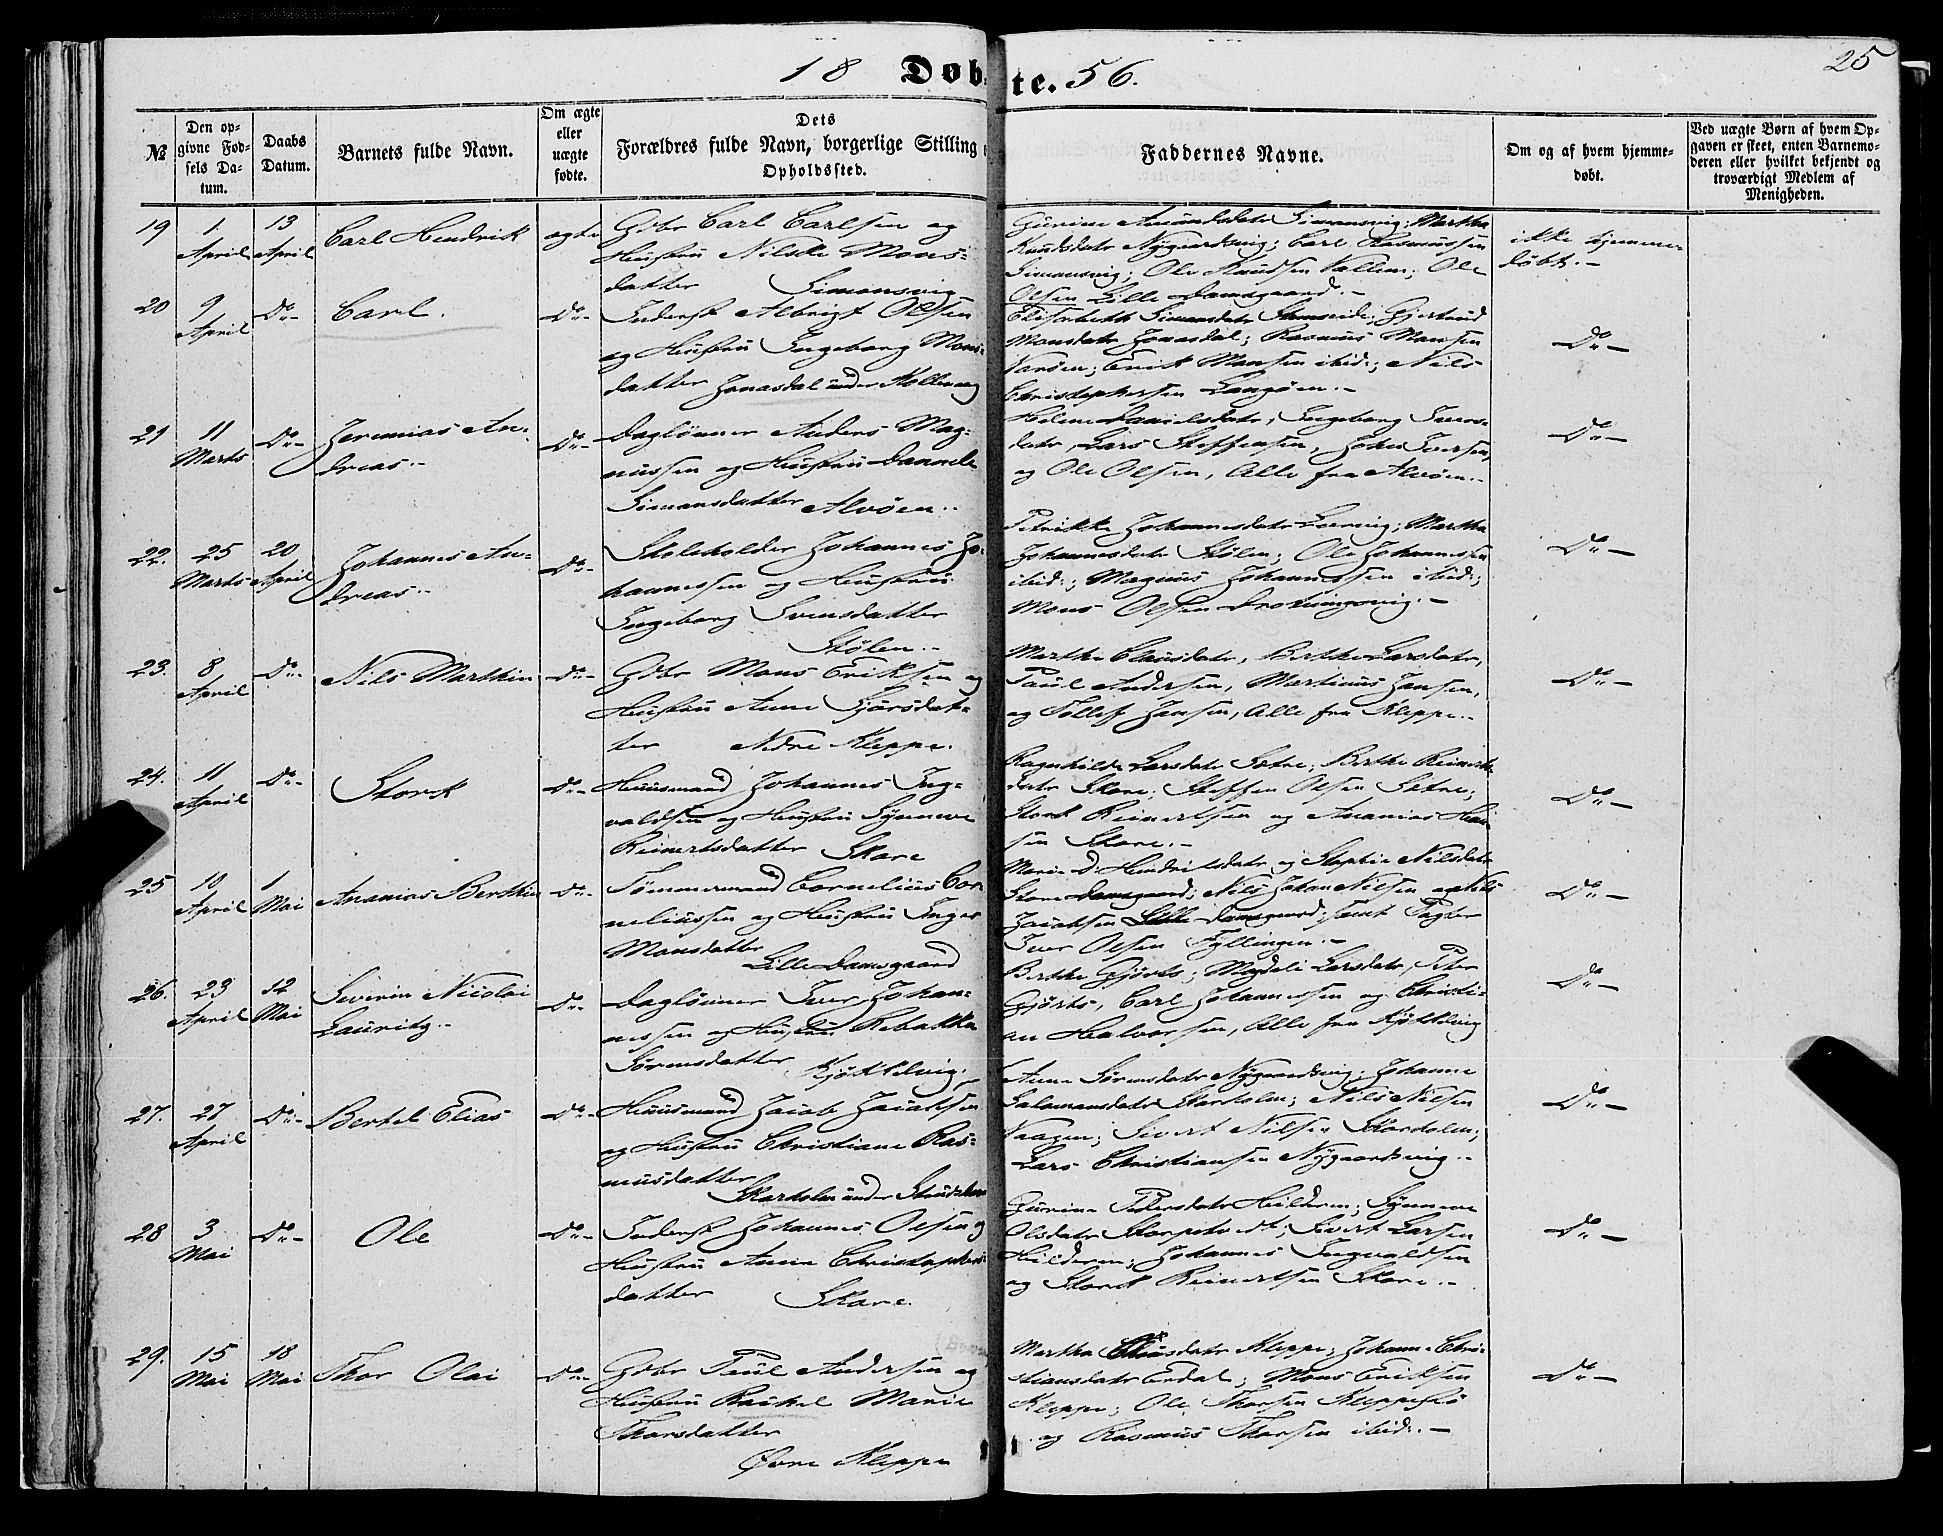 18 Døbte. 56.
25
№
Den op-
givne Fød-
sels Da-
tum.
Daabs
Datum.
Barnets fulde Navn.
Om ægte
eller
uægte
fødte.
Dets
Forældres fulde Navn, borgerlige Stilling
Opholdssted.
Faddernes Navne.
Om og af hvem hjemme-
døbt.
Ved uægte Børn af hvem Op-
gaven er skeet, enten Barnemo-
deren eller hvilket bekjendt og
troværdigt Medlem af
Menigheden.
19
1
April
13
April
Carl Hendrik
ægte
Gdbr Carl Carlsen og
Hustru Nilske Mons-
datter Simonsvig
Gurine Amundsdatr Simonsvig; Martha
Knudsdatr Nygaardsvig; Carl Rasmussen
Simonsvig; Ole Knudsen Vallem; Ole
Olsen Lille Damsgaard.-
ikke hjemme-
døbt.-
20
9
April
Do-
Carl.
Do-
Inderst Albrigt Olsen
og Hustru Ingeborg Mons-
datter Jonasdal under
Elisabeth Simonsdatr; Gjertrud
Monsdatr Jonasdal; Rasmus Monsen
Erik Monsen ibid:; Nils
Christophersen Langøen.-
Do-
21
11
Marts
Do-
Jeremias An-
dreas.-
Do-
Daglønner Anders Mag-
nussen og Hustru
Simonsdatter Alvøen.-
Helene Danielsdatr, Ingeborg Ivers-
datr, Lars Steffensen, Johan Iversen,
og Ole Olsen, Alle fra Alvøen.-
Do-
22.
25
Marts
20
April
Johannes An-
dreas.-
Do-
Skoleholder Johannes Jo-
hannessen og Hustru
Ingeborg Svensdatter
Stølen.-
Petrikke Johannesdatr; Martha
Johannesdatr Stølen; Ole Johannessen
ibid:; Magnus Johannessen ibid:;
Mons Olsen Drotningsvig.-
Do-
23.
8
April
Do-
Nils Marthin
Do-
Gdbr Mons Eriksen og
Hustru Anne Sjursdat-
ter Nedre Kleppe.
Martha Clausdatr, Berthe Larsdatr,
Paul Andersen, Martinus Jansen,
og Tollef Jansen, Alle fra Kleppe.-
Do-
24.
11
April
Do-
Stork
Do-
Huusmand Johannes Ing-
valdsen og Hustru Synneve
Reinertsdatter Skare
Ragnhilde Larsdatr Sætre; Berthe Reinerts-
datr Skare; Steffen Olsen Sætre;
Stork Reinertsen og Ananias Han-
sen Skare.-
Do-
25
10
April
1
Mai
Ananias Berthin
Do-
Tømmermand Cornelius Cor-
neliussen og Hustru Inger
Monsdatter
Lille Damsgaard
Marie D. Hendriksdatr og Sophie Nilsdatr
Store Damsgaard; Nils Johan Nielsen og Nils
Jacobsen Lille Damsgaard; samt Pagter
Iver Olsen Fyllingen.-
Do-
26.
23
April
12
Mai
Severin Nicolai
Lauritz.-
Do-
Daglønner Iver Johan-
nessen og Hustru Rebakka
Sørensdatter Kjøkkelvig.
Berthe Gjørts; Magdeli Larsdatr, Peter
Gjørts, Carl Johannessen og Christi-
an Halvorsen, Alle fra Kjøkkelvig
Do-
27.
27
April
Do-
Bertel Elias
Do-
Huusmand Jacob Jacobsen
og Hustru Christiane Ras-
musdatter
Skarholm under
Anne Sørensdatr Nygaardsvig; Johanne
Salamonsdatr Skarholm; Nils Nilsen
Vaagen; Sivert Nilsen Skarholm;
Lars Christiansen Nygaardsvig.-
Do-
28
3
Mai
Do-
Ole
Do-
Inderst Johannes Olsen og
Hustru Anne Christophers-
datter Skare.
Gurine Pedersdatr Hilderen; Synneve
Olsdatr; Sivert Larsen
Hilderen; Johannes Ingvaldsen
og Stork Reinertsen Skare.-
Do-
29.
15
Mai
18
Mai
Thor Olai
Do-
Gdbr Paul Andersen og
Hustru Rachel Marie
Thorsdatter
Øvre Kleppe
Martha Clausdatr Kleppe; Johanne Chri-
stiansdatr Erdal; Mons Eriksen
Kleppe; Ole Thorsen Kleppesø
og Rasmus Thorsen ibid:.-
Do-